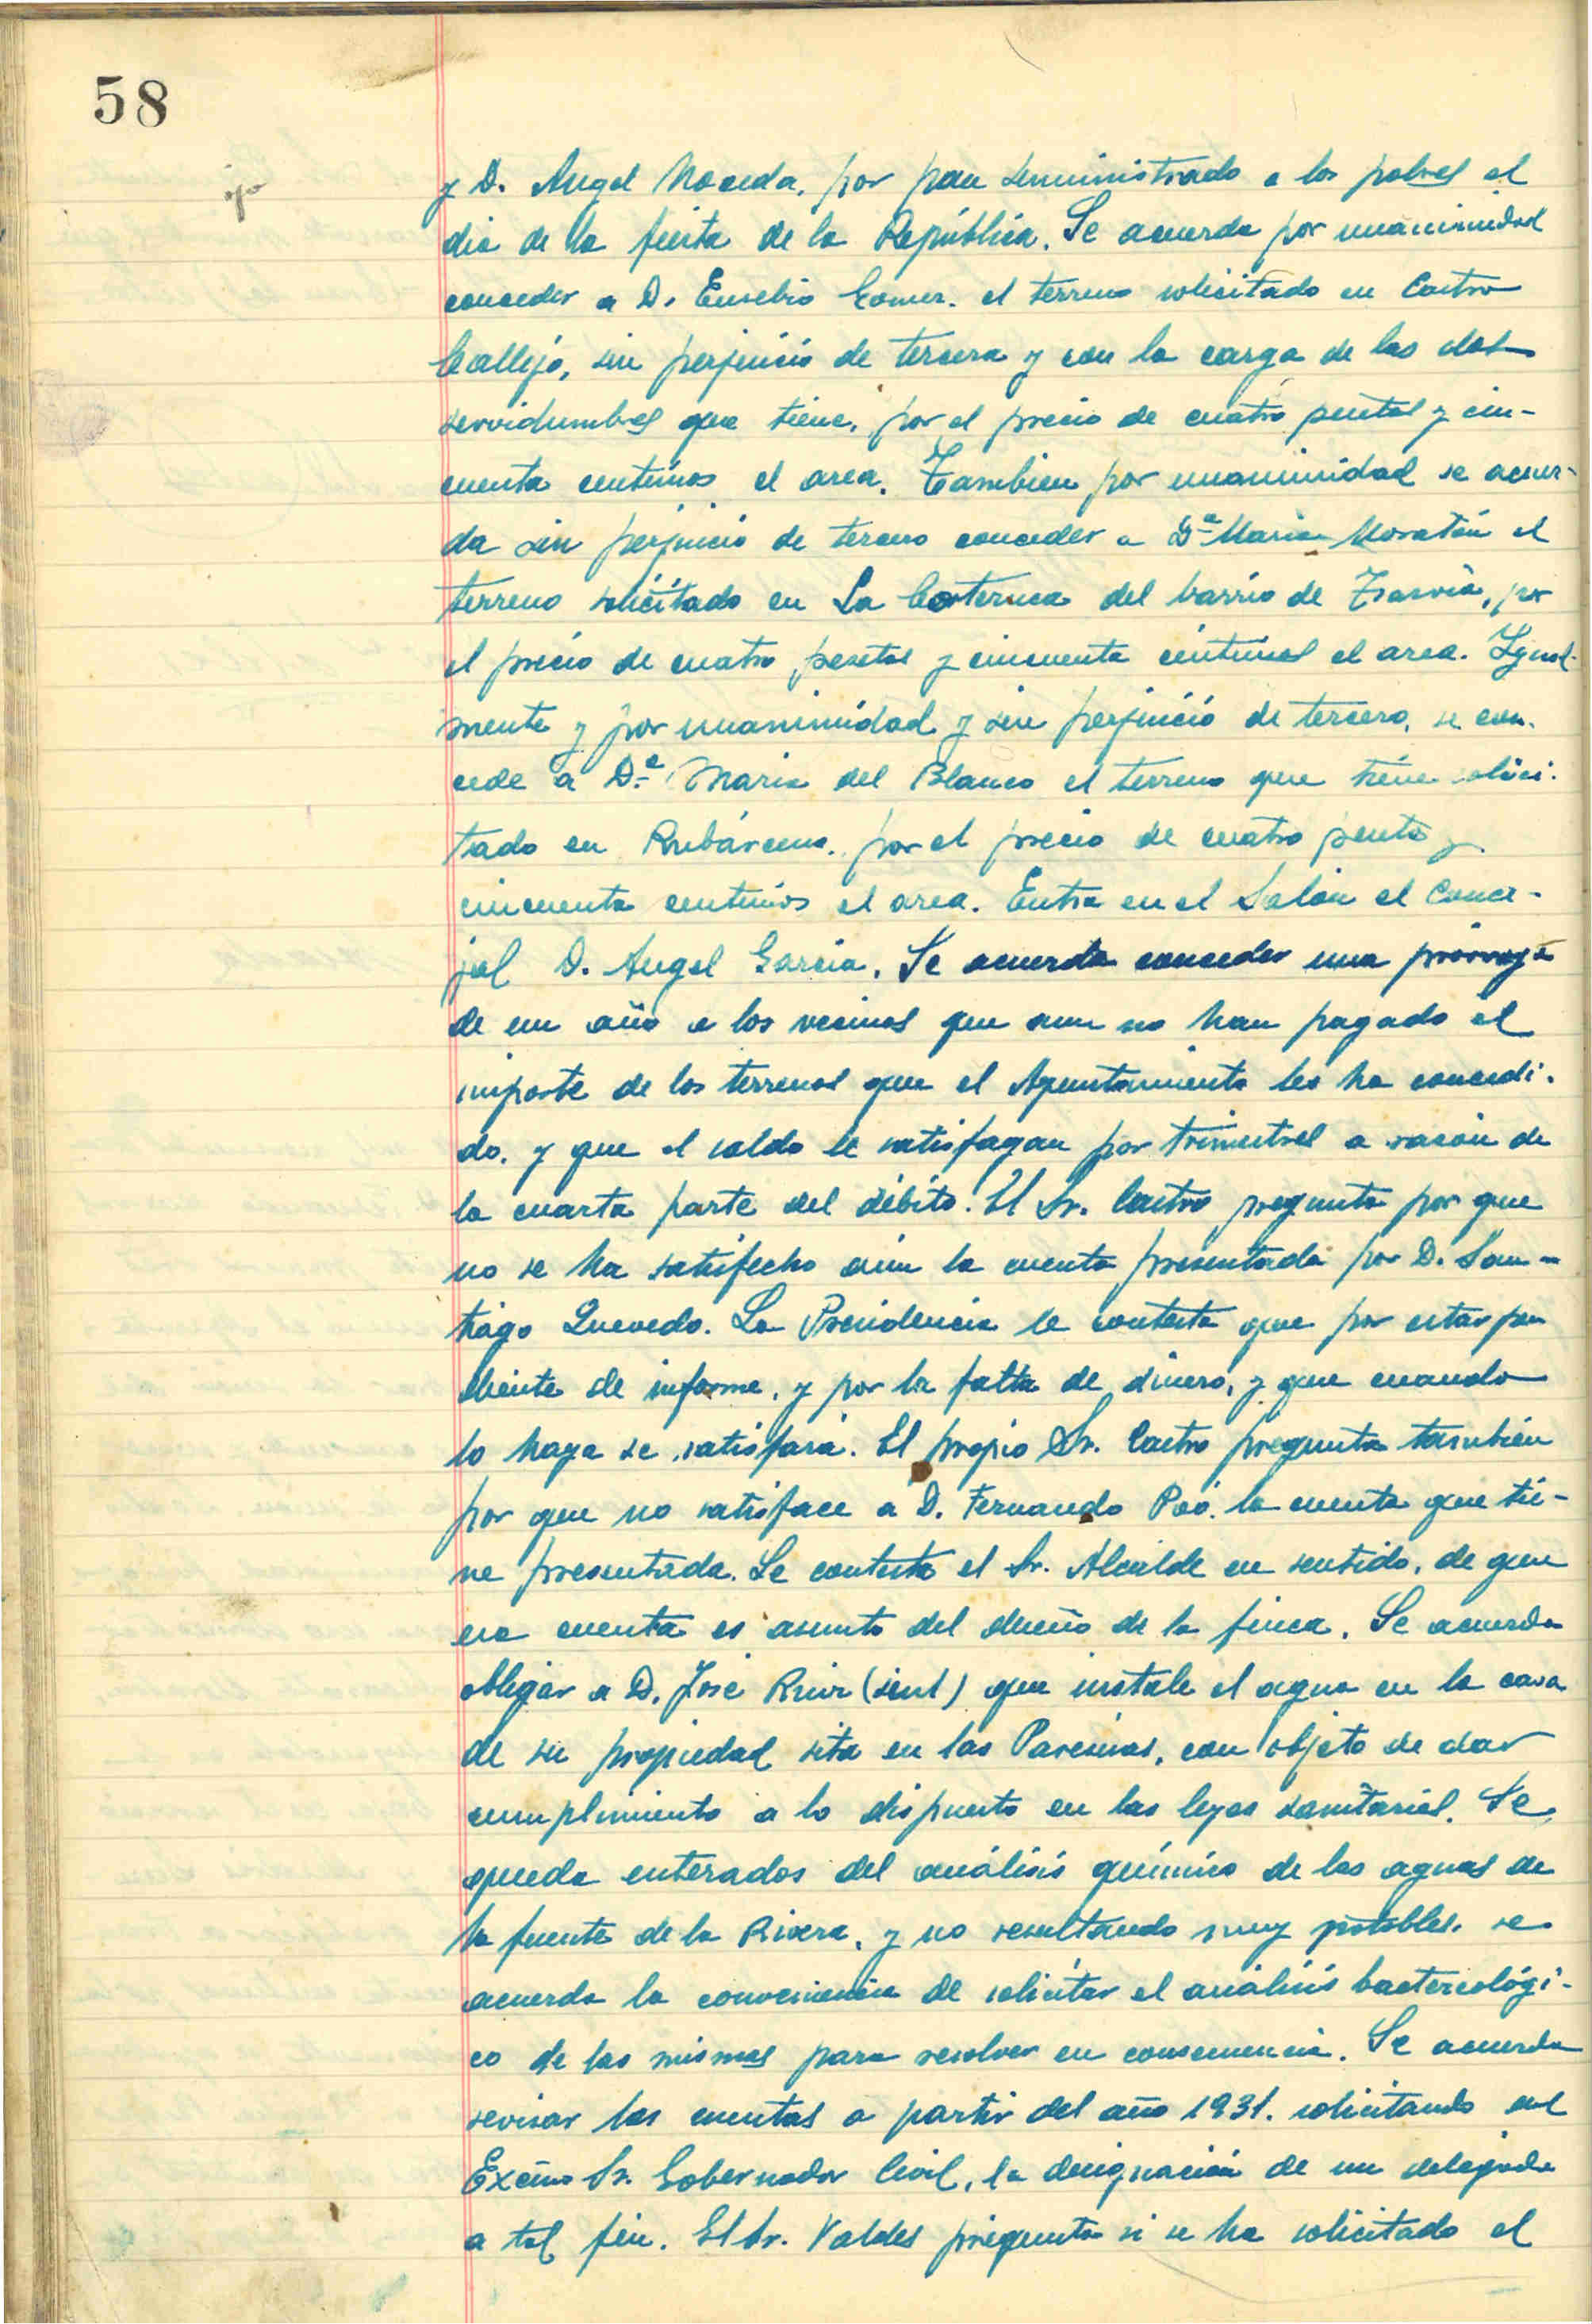 58
y D. Angel Noceda, por pan suministrado a los pobres el
dia de la fiesta de la República. Se acuerda por unanimidad
conceder a D. Eusebio Gomez. el terreno solicitado en Castro
Callejo, sin perjuicio de tercera y con la carga de las dos
servidumbres que tiene, por el precio de cuatro pesetas y cin-
cuenta centimos el area. Tambien por unanimidad se acuer-
da sin perjuicio de tercero conceder a Dª Maria Moratón el
terreno solicitado en La Coteruca del barrio de Trasvia, por
el precio de cuatro pesetas y cincuenta céntimos el area. Igual-
mente y por unanimidad y sin perjuicio de tercero, se con-
cede a Dª Maria del Blanco el terreno que tiene solici-
tado en Rubárcena, por el precio de cuatro pesetas y
cincuenta centimos el area. Entra en el Salón el Conce-
jal D. Angel Garcia. Se acuerda conceder una prórroga
de un año a los vecinos que aun no han pagado el
importe de los terrenos que el Ayuntamiento les ha concedi-
do, y que el saldo le satisfagan por trimestres a razón de
la cuarta parte del débito. El Sr. Castro pregunta por que
no se ha satisfecho aún la cuenta presentada por D. San-
tiago Quevedo. La Presidencia le contesta que por estar pen
diente de informe, y por la falta de dinero, y que cuando
lo haya se satisfará. El propio Sr. Castro pregunta también
por que no satisface a D. Fernando Poó. la cuenta que tie-
ne presentada. Le contesta el Sr. Alcalde en sentido, de que
esa cuenta es asunto del dueño de la finca. Se acuerda
obligar a D. José Ruiz que instale el agua en la casa
de su propiedad sita en las Paresinas, con objeto de dar
cumplimiento a lo dispuesto en las leyes sanitarias. Se
queda enterados del análisis químico de las aguas de
la fuente de la Rivera, y no resultando muy potables. se
acuerda la conveniencia de solicitar el análisis bactereológi-
co de las mismas para resolver en consecuencia. Se acuerda
revisar las cuentas a partir del año 1931. solicitando del
Excmo Sr. Gobernador Civil, la designación de un delegado
a tal fin. El Sr. Valdes pregunta si se ha solicitado el